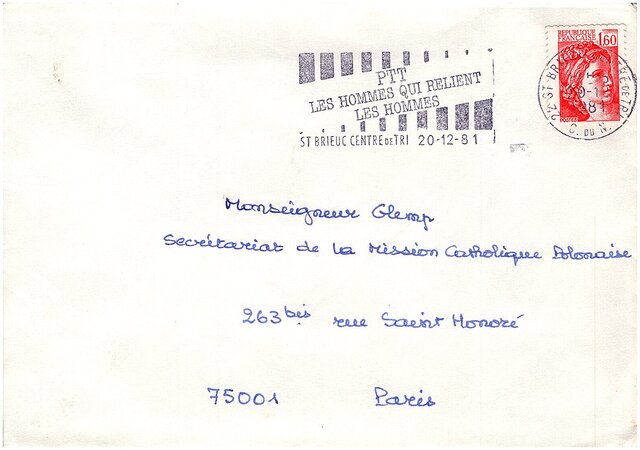 REPUBLIQUE
FRANÇAISE 1,60
POSTES
PTT
LES HOMMES QUI RELIENT
LES HOMMES
ST BRIEUC CENTRE DE TRI 20-12-81
C. DU N.
Monseigneur Glemp
Secrétariat de la Mission Catholique Polonaise
263 bis rue Saint Honoré
75001 Paris